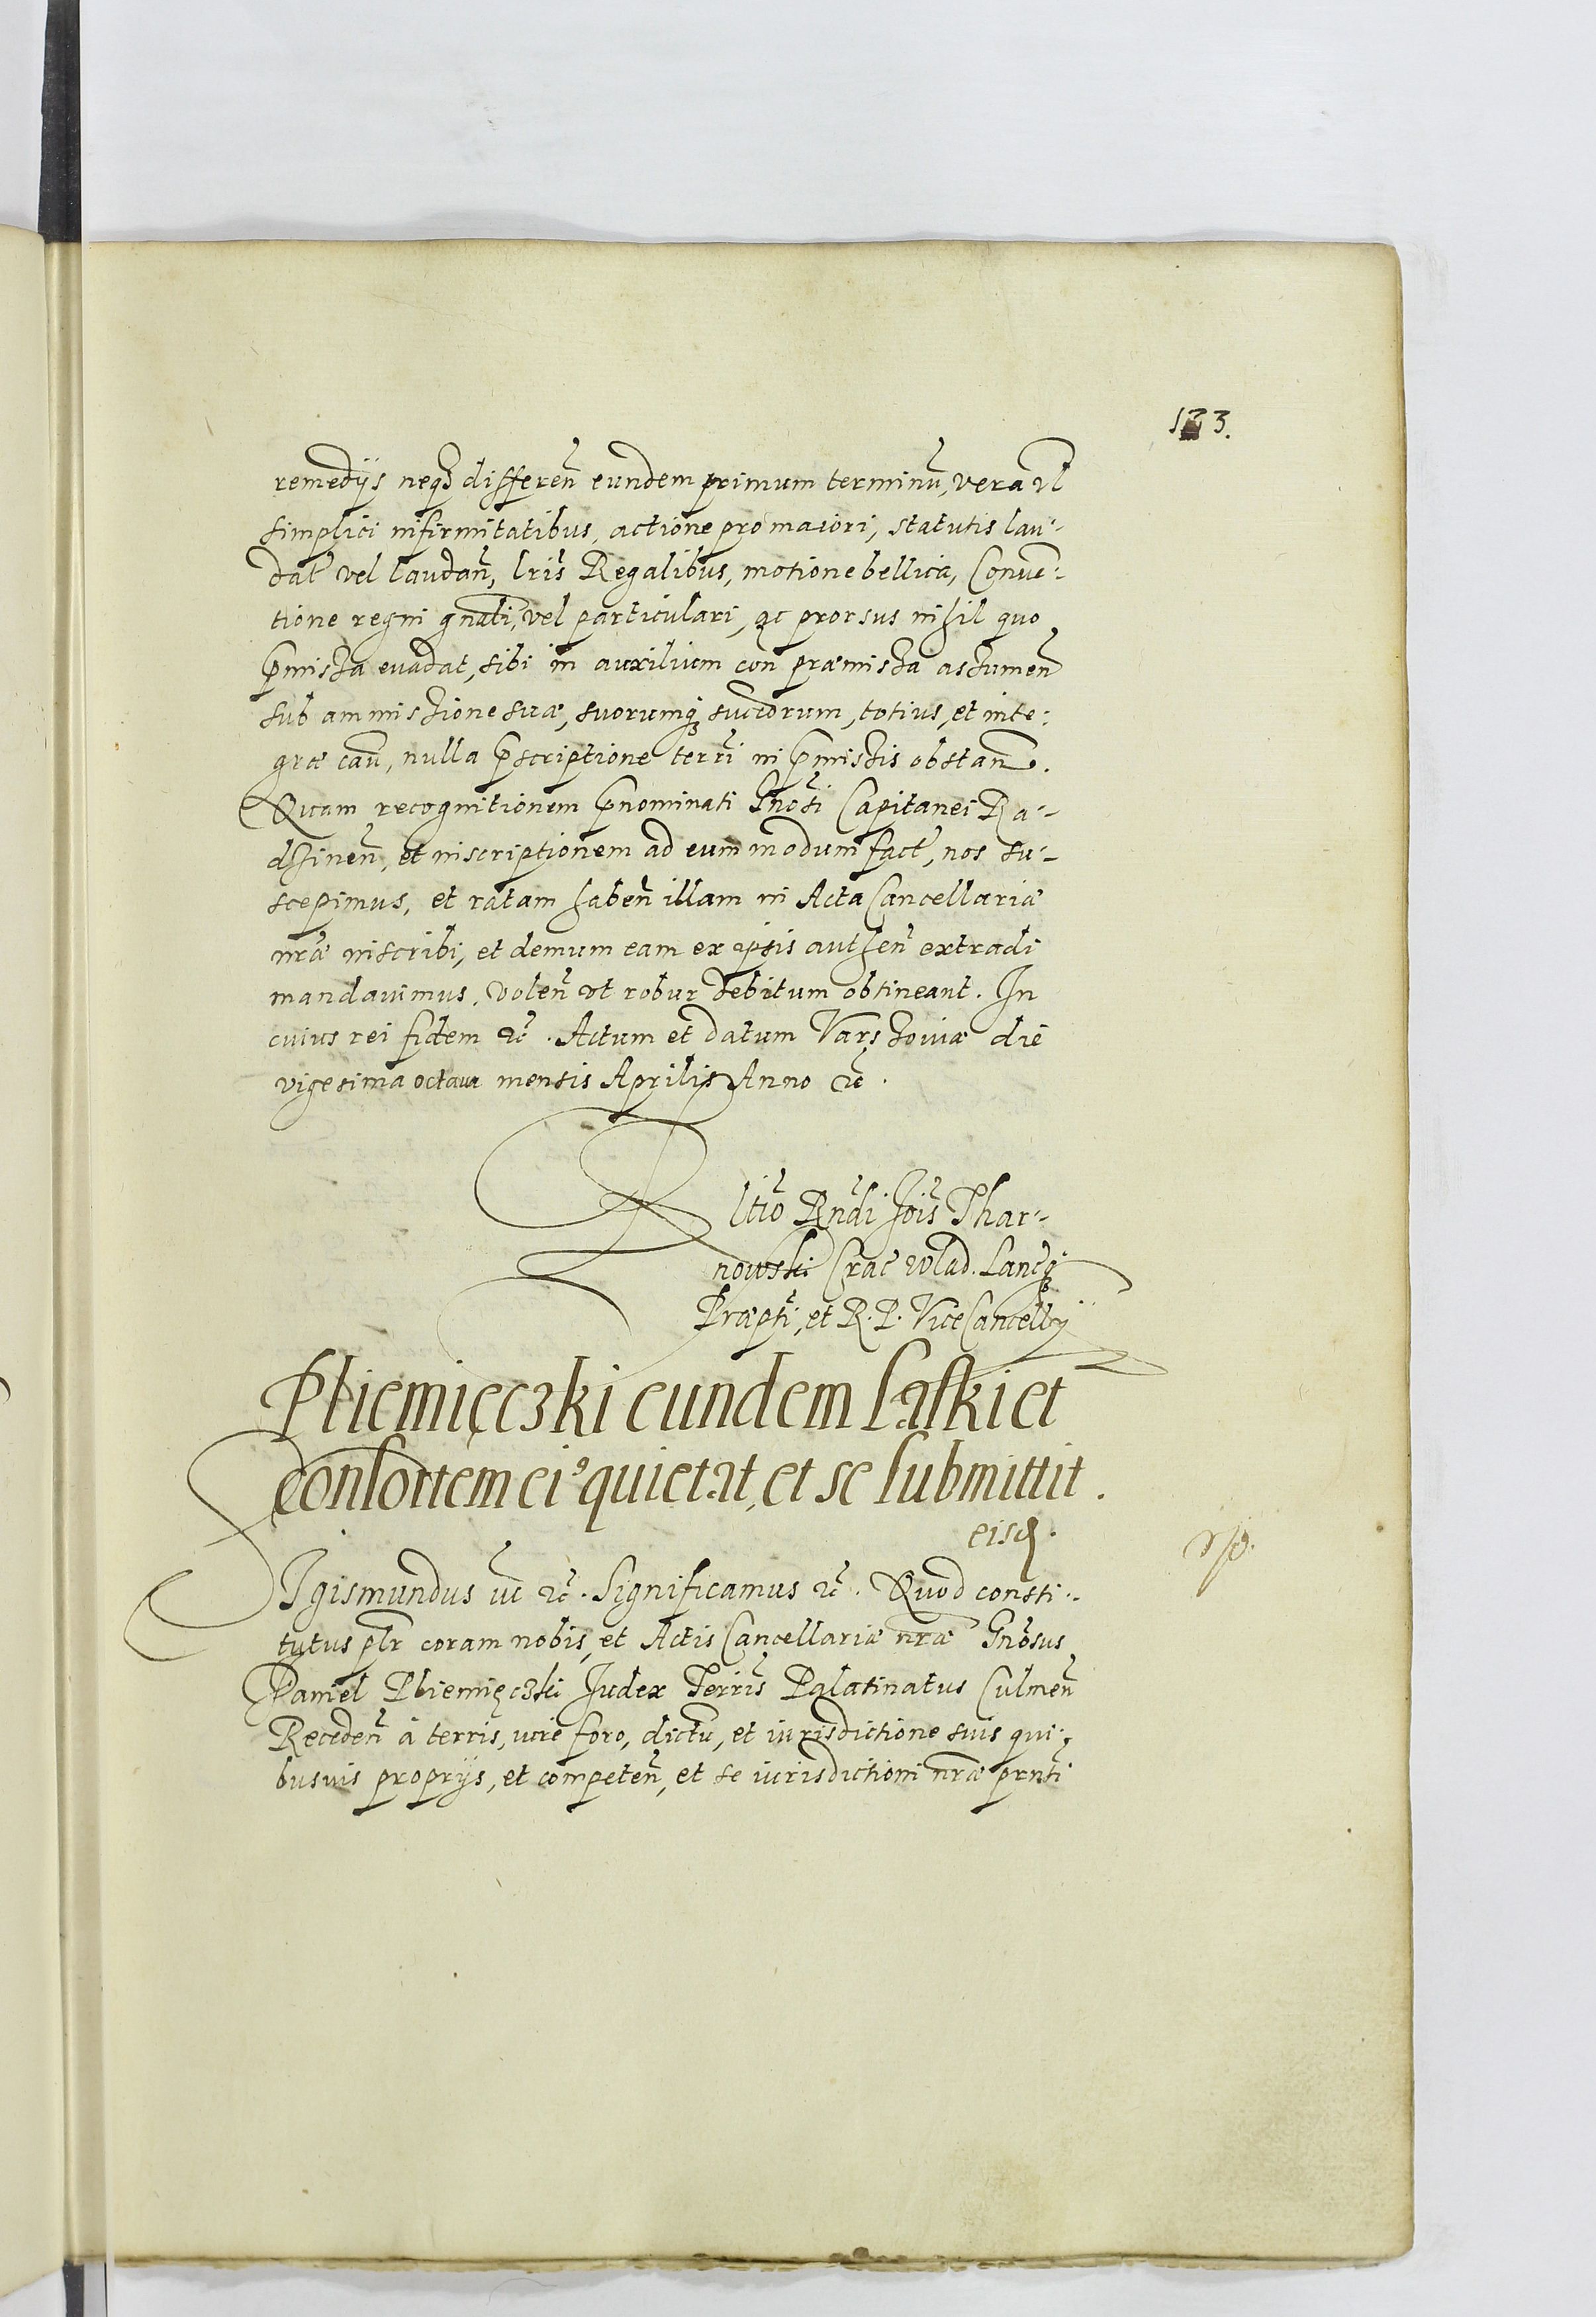 133.
remedijs neqȝ differen̄ eundem primum terminū, vera vl
simplici infirmitatibus, actione pro maiori, statutis lau-
dat̄ vel laudan̄, lr̄is Regalibus, motione bellica, Conven-
tione regni gn̄ali, vel particulari, ac prorsus nihil quo
p̄missa evadat, sibi in auxilium con̄ præmissa assumen̄
sub ammissione suæ, suorumqȝ succōrum, totius, et inte-
græ cau̅, nulla p̄scriptione terr̄i in p̄missis obstan̄.
Quam recognitionem p̄nominati Gn̄osi Capitanei Ra-
dzinen̄, et inscriptionem ad eum modum fact̄, nos su-
scepimus, et ratam haben̄ illam in Acta Cancellariæ
nr̄æ inscribi, et demum eam ex ipsis authen̄ extradi
mandavimus, volen̄ vt robur debitum obtineant. In
cuius rei fidem etc̄. Actum et datum Varssoviæ die
vigesima octava mensis Aprilis Anno etc̄.
Rltio Rn̄di Jois̄ Thar-
nowski Crac̄ Wlad. Lancȝ
Præpti, et R. P. ViceCancellrij
Pliemięczki eundem Laski et
consortem ei⁹ quietat, et se submittit.
eisd.
SIgismundus iii etc̄. Significamus etc̄. Quod consti-
tutus pl̄r coram nobis, et Actis Cancellariæ nr̄æ Gn̄osus
Daniel Pliemięczki Judex Terrīs Palatinatus Culmen̄
Receden̄ à terris, ucie foro, dictū, et iurisdictione suis qui-
busvis proprijs, et competen̄, et se iurisdictioni nr̄æ prn̄ti